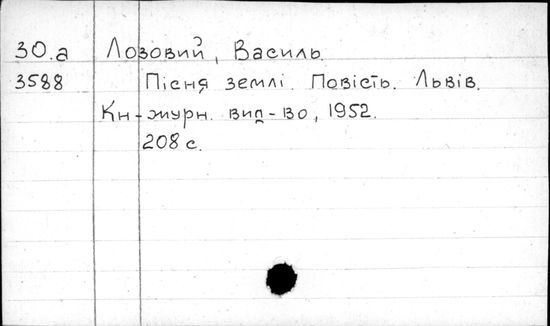 30.a Лозовий, Василь.
3588 Пісня землі. Повість. Львів.
Кн-журн. вид-во, 1952.
208 с.